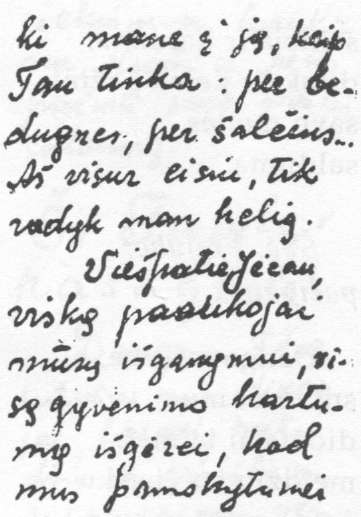 ki mane į ją, kaip
Tau tinka: per be-
dugnes, per šalčius...
Aš visur eisiu, tik
rodyk man kelią.
Viešpatie Jėzau,
viską paaukojai
mūsų išganymui, vi-
są gyvenimo kartu-
mą išgėrei, kad
mus pamokytumei